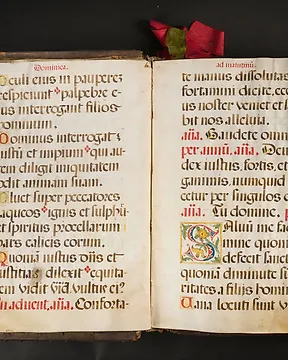 Dominica.
Oculi eius in pauperez
respiciunt palpebre e-
us interrogant filios
hominum.
Dominus interrogat i
ustu et impium qui au-
tem diligit iniquitatem
odit animam suam.
Pluet super peccatores
laqueos ignis et sulphu-
et spiritus procellarum
pars calicis eorum.
Quoniā iustus dn̄s et
iustitias dilexit equita-
tem vidit vultus ei?
In aduent. aña. Conforta-
ad matutinū.
te manus dissolutas
fortamini dicite, ecce
us noster veniet et s
bit nos alleluia.
aña. Gaudete omn
per annū, aña. Deus
dex iustus, fortis, et
gammis, nunquid i
cetur per singulos d
aña. Tu domine. p
Saluū me fac
mine quoni
defecit sanct
quoniā diminute su
ritates a filijs homin
Uana locuti sunt v